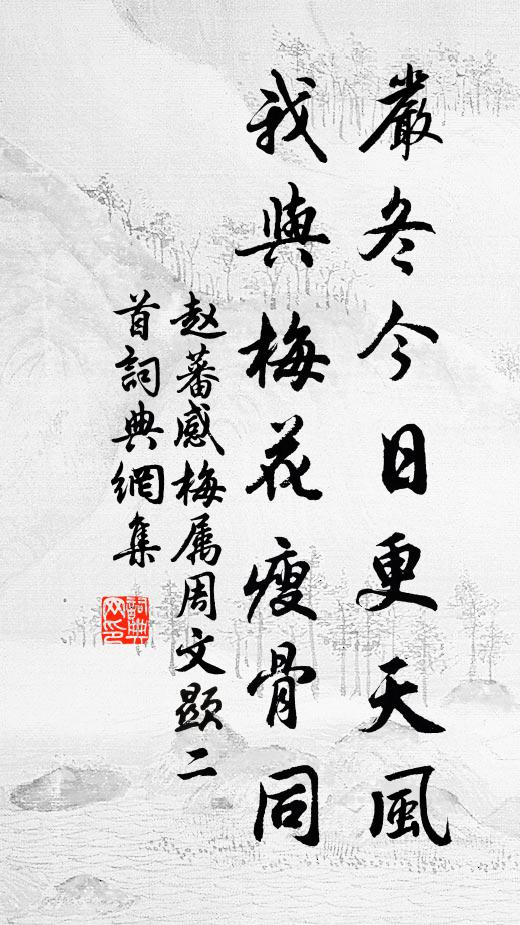 嚴冬今日更天風
我與梅花瘦骨同
赵蕃感梅属周文顕二
首詞典網集
詞典
网印